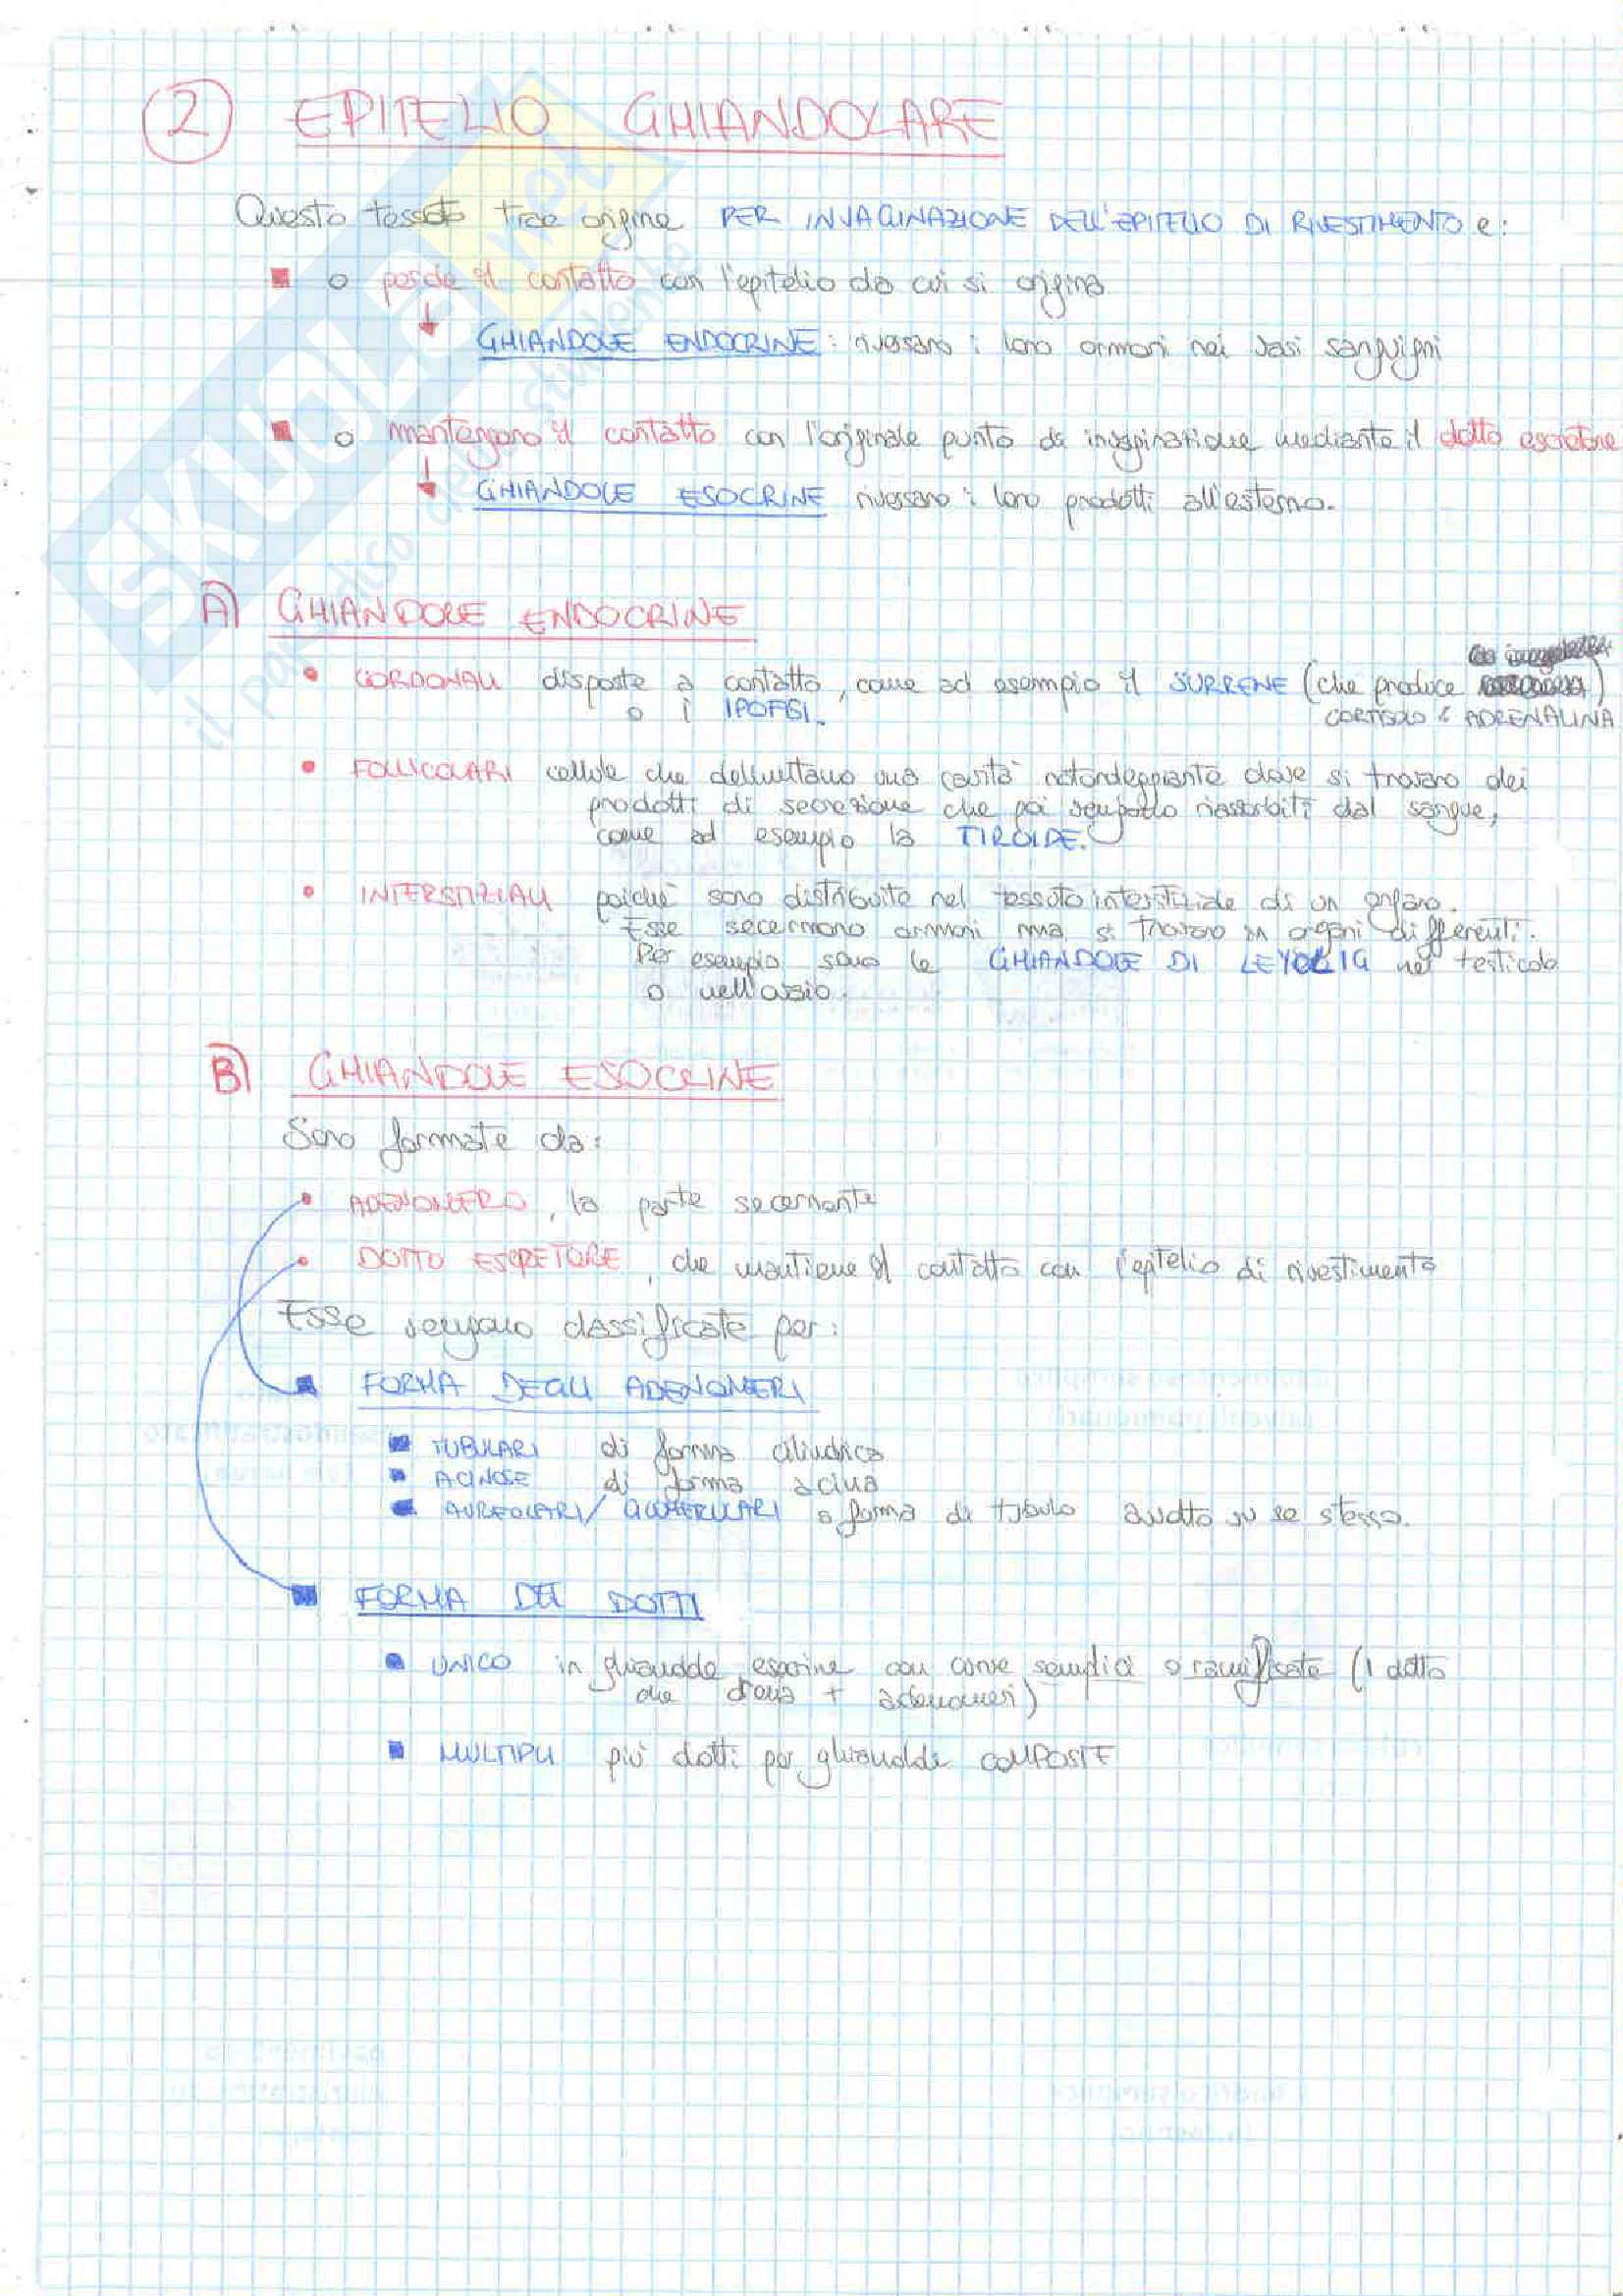 2 EPITELIO GHIANDOLARE
Questo tessuto trae origine PER INVAGINAZIONE DELL'EPITELIO DI RIVESTIMENTO e:
o perde il contatto con l'epitelio da cui si origina
GHIANDOLE ENDOCRINE: riversano i loro ormoni nei vasi sanguigni
o mantengono il contatto con l'originale punto di invaginazione mediante il dotto escretore
GHIANDOLE ESOCRINE riversano i loro prodotti all'esterno.
A) GHIANDOLE ENDOCRINE
• CORDONALI disposte a contatto, come ad esempio il SURRENE (che produce )
o i IPOFISI. CORTISOLO E ADRENALINA
• FOLLICOLARI cellule che delimitano una cavità rotondeggiante dove si trovano dei
prodotti di secrezione che poi vengono riassorbiti dal sangue,
come ad esempio la TIROIDE.
• INTERSTIZIALI poiché sono distribuite nel tessuto interstiziale di un organo.
Esse secernono ormoni ma si trovano in organi differenti.
Per esempio sono le GHIANDOLE DI LEYDIG nel testicolo
o nell'ovaio.
B) GHIANDOLE ESOCRINE
Sono formate da:
• ADENOMERO, la parte secernente
• DOTTO ESCRETORE, che mantiene il contatto con l'epitelio di rivestimento
Esse vengono classificate per:
FORMA DEGLI ADENOMERI
TUBULARI di forma cilindrica
ACINOSE di forma acina
ALVEOLARI/ GLOMERULARI a forma di tubulo avvolto su se stesso.
FORMA DEI DOTTI
UNICO in ghiandole esocrine con forme semplici o ramificate (1 dotto
che drena + adenomeri)
MULTIPLI più dotti per ghiandole COMPOSTE
SKUOLA.net
il paradiso dello studente